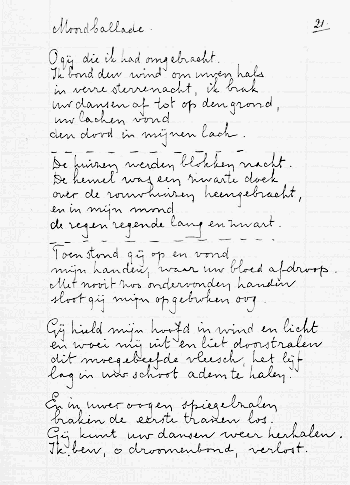 Moordballade.
21.
O gij die ik had omgebracht.
Ik bond den wind om uwen hals
in verre sterrenacht, ik brak
uw dansen af tot op den grond,
uw lachen vond
den dood in mijnen lach.
De huizen werden blokken nacht.
De hemel was een zwarte doek
over de rouwhuizen heengebracht,
en in mijn mond
de regen regende lang en zwart.
Toen stond gij op en vond
mijn handen, waar uw bloed afdroop.
Met nooit zoo ondervonden handen
sloot gij mijn opgebroken oog.
Gij hield mijn hoofd in wind en licht
en woei mij uit en liet doorstralen
dit moegebeefde vleesch, het lijf
lag in uw schoot adem te halen.
En in uwer oogen spiegelzalen
braken de eerste tranen los.
Gij kunt uw dansen weer herhalen.
Ik ben, o droomenbond, verlost.